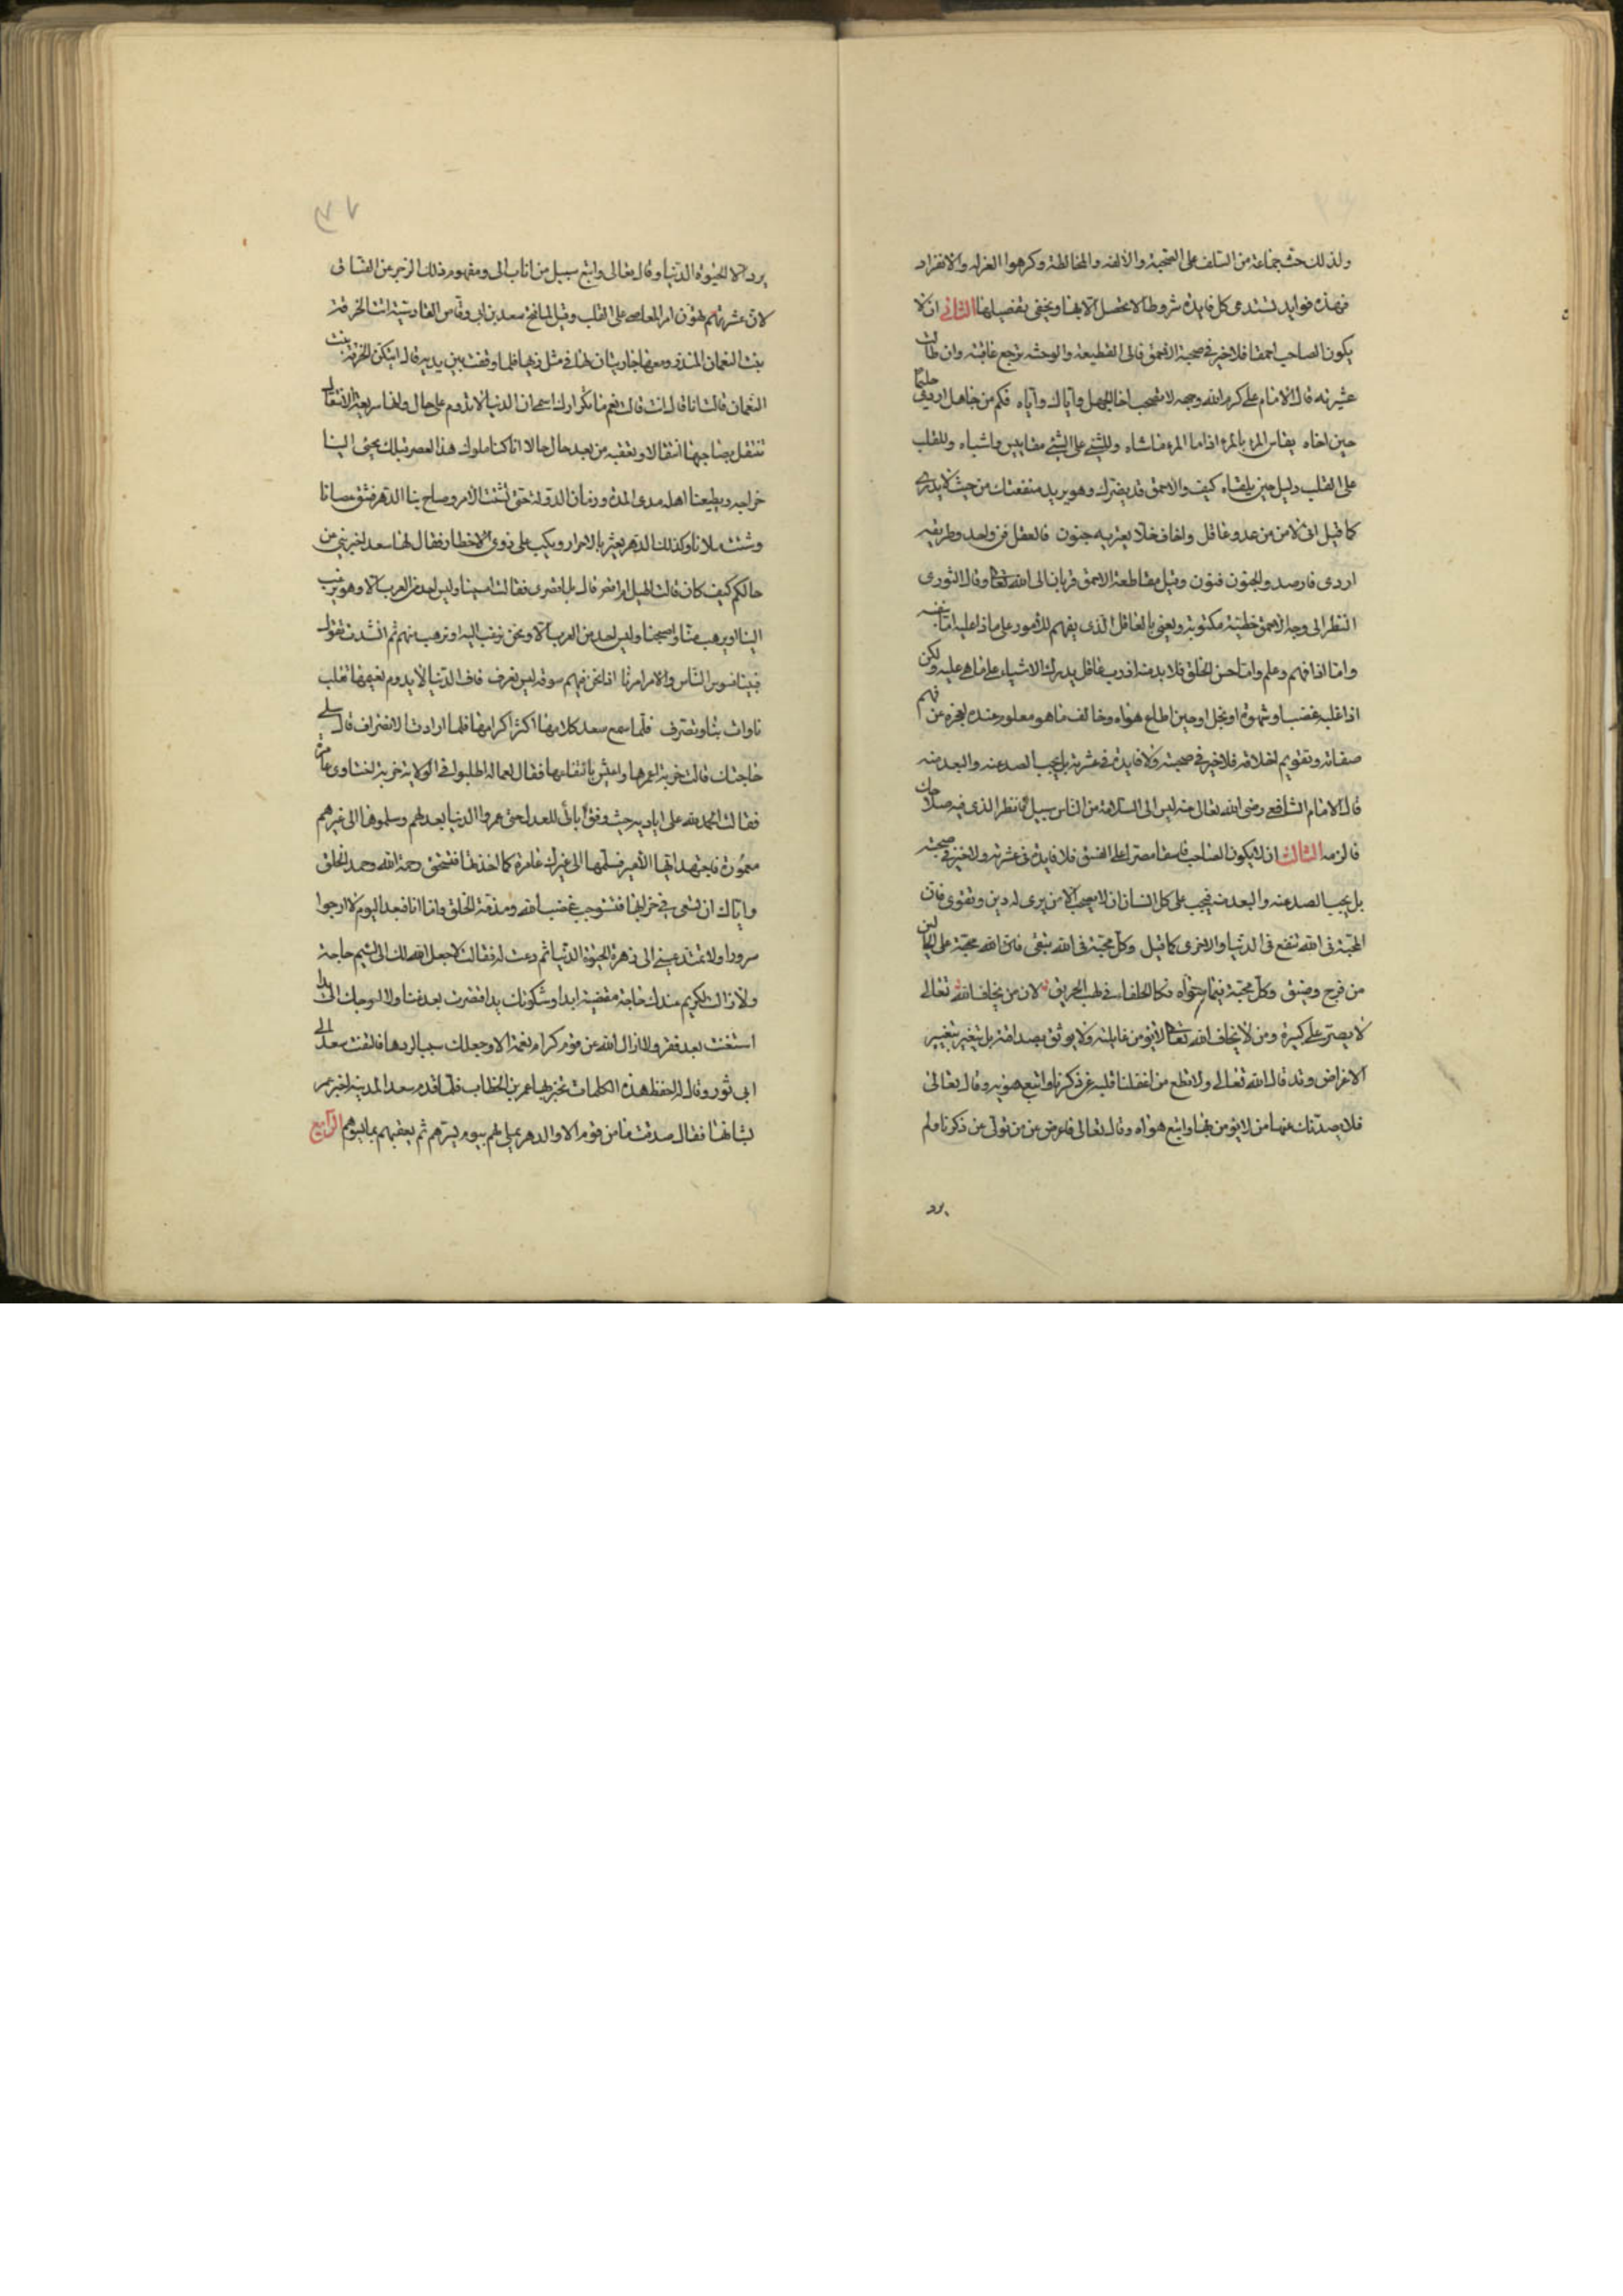 ولذلك حث جماعة من السلف على الصحبة والالفة والمخالطة وكرهوا العزلة والانفراد
فهذه فوايد تستدعى كل فايدة شروطا لا تحصل الا بها ويخفى تفصيلها الثانى ان لا
يكون الصاحب احمقا فلا خير فى صحبة الاحمق فالى القطيعة والوحشه ترجع عاقبته وان طالت
عشرته قال الامام على كرم الله وجهه لا تصحب اخا الجهل واياك واياه فكم من جاهل اردى حليما
حين اخاه يقاس المرء بالمرء اذا ما المرء ماشاه وللشئ على الشئ مقاييس واشباه وللقلب
على القلب دليل حين يلقاه كيف والاحمق قد يضرك وهو يريد منفعتك من حيث لا يدرى
كما قيل انى لامن من عدو عاقل واخاف خلا يعتريه جنون فالعقل فن واحد وطريقه
ادرى فارصد والجنون فنون وقيل مقاطعة الاحمق قربان الى الله تعالى وقال الثورى
النظر الى وجه الاحمق خطيئة مكتوبة ويعنى بالعاقل الذى يفهم للامور على ماذا عليه اما بنفسه
واما اذا فهم وعلم واما حسن الخلق فلا بد منه اذ رب عاقل يدرك الاشياء على ما هى عليه ولكن
اذا غلبه غضب او شهوة او بخل او جبن اطاع هواه وخالف ما هو معلوم عنده لعجزه عن فهم
صفاته وتقويم اخلاقه فلا خير فى صحبته ولا فايدة فى عشرته بل يجب الصد عنه والبعد منه
قال الامام الشافعى رضى الله تعالى عنه ليس الى السلامة من الناس سبيل فانظر الذى فيه صلاحك
فالزمه الثالث ان لا يكون الصاحب فاسقا مصرا على الفسق فلا فايدة فى عشرته ولا خير فى صحبته
بل يجب الصد عنه والبعد منه فيجب على كل انسان ان لا يصحب الا من يرى له دين وتقوى فان
المحبة فى الله تنفع فى الدنيا والاخرى كما قيل وكل محبة فى الله تبقى فان الله محبة على الحالين
من فرح وضيق وكل محبة فيما سواه فكالحلفاء فى لهب الحريق لان من يخاف الله تعالى
لا يصر على كبيرة ومن لا يخاف الله تعالى لا تؤمن غايلته ولا يوثق بصداقته بل يتغير بتغيير
الاغراض وقد قال الله تعالى ولا تطع من اغفلنا قلبه عن ذكرنا واتبع هويه وقال تعالى
فلا يصدنك عنها من لا يؤمن بها واتبع هواه وقال تعالى فاعرض عن من تولى عن ذكرنا ولم
يرد
يرد الا الحيوة الدنيا وقال تعالى واتبع سبيل من اناب الى ومفهوم ذلك الزجر عن الفساق
لان عشرتهم تهون امر المعاصى على القلب وقيل لما فتح سعد بن ابى وقاص القادسية اتت الخرقة
بنت النعمان المنذر ومعها جاريتان لها فى مثل زيها فلما وقفت بين يديه قال ايتكن الخرقة بنت
النعمان قالت انا قال انت قالت نعم فما تكرارك اسمى ان الدنيا لا تدوم على حال وانها سريعة الانتقال
تنتقل بصاحبها انتقالا وتعقبه من بعد حال حالا انا كنا ملوك هذا العصر قبلك يجبى الينا
خراجه ويطيعنا اهله مدى المدة وزمان الدولة حتى تشتت الامر وصاح بنا الدهر فشق عصانا
وشتت ملانا وكذلك الدهر يعثر بالاحرار ويكب على ذوى الاخطار فقال لها سعد اخبرينى عن
حالكم كيف كان قالت اطيل ام اقصر قال بل اقصرى فقالت امسينا وليس احد من العرب الا وهو يرغب
الينا او يرهب منا واصبحنا وليس احد من العرب الا ونحن نرغب اليه او نرهب منهم ثم انشدت تقول
فبينا نسوس الناس والامر امرنا اذا نحن فيهم سوقة ليس نعرف فاف لدنيا لا يدوم نعيمها تقلب
تاوات بنا وتصرف فلما سمع سعد كلامها اكثر اكرامها فلما ارادت الانصراف قال سلى
حاجتك قالت خربة اعمرها واعيش بانتفاعها فقال لعماله اطلبوا فى الولاية خربة لعشاوى عامرة
فقالت الحمد لله على اياديه حيث وفق اباى للعدل حتى عمروا الدنيا بعدلهم وسلموها الى غيرهم
معمورة فاجتهد ايها الامير فسلمها الى غيرك عامرة كما اخذتها فتستحق رحمة الله وحمد الخلق
واياك ان تسعى فى خرابها فتستوجب غضب الله ومذمة الخلق واما انا فبعد اليوم لا ارجوا
سرورا ولا تمتد عينى الى زهرة الحيوة الدنيا ثم دعت له فقالت لا جعل الله لك الى لئيم حاجة
ولا زال لكريم عندك حاجة مقضية ابدا وشكرتك يد افتقرت بعد غنا ولا احوجك الى يد
استغنت بعد فقر ولا ازال الله عن قوم كرام نعمة الا وجعلك سببا لردها فالتفت سعد الى
ابى ثور وقال له احفظ هذه الكلمات تخبر بها عمر بن الخطاب فلما قدم سعد المدينة اخبر عمر
بشانها فقال صدقت ما من قوم الا والدهر يملى لهم بيوم يسرهم ثم يعقبهم بما يسوهم الرابع